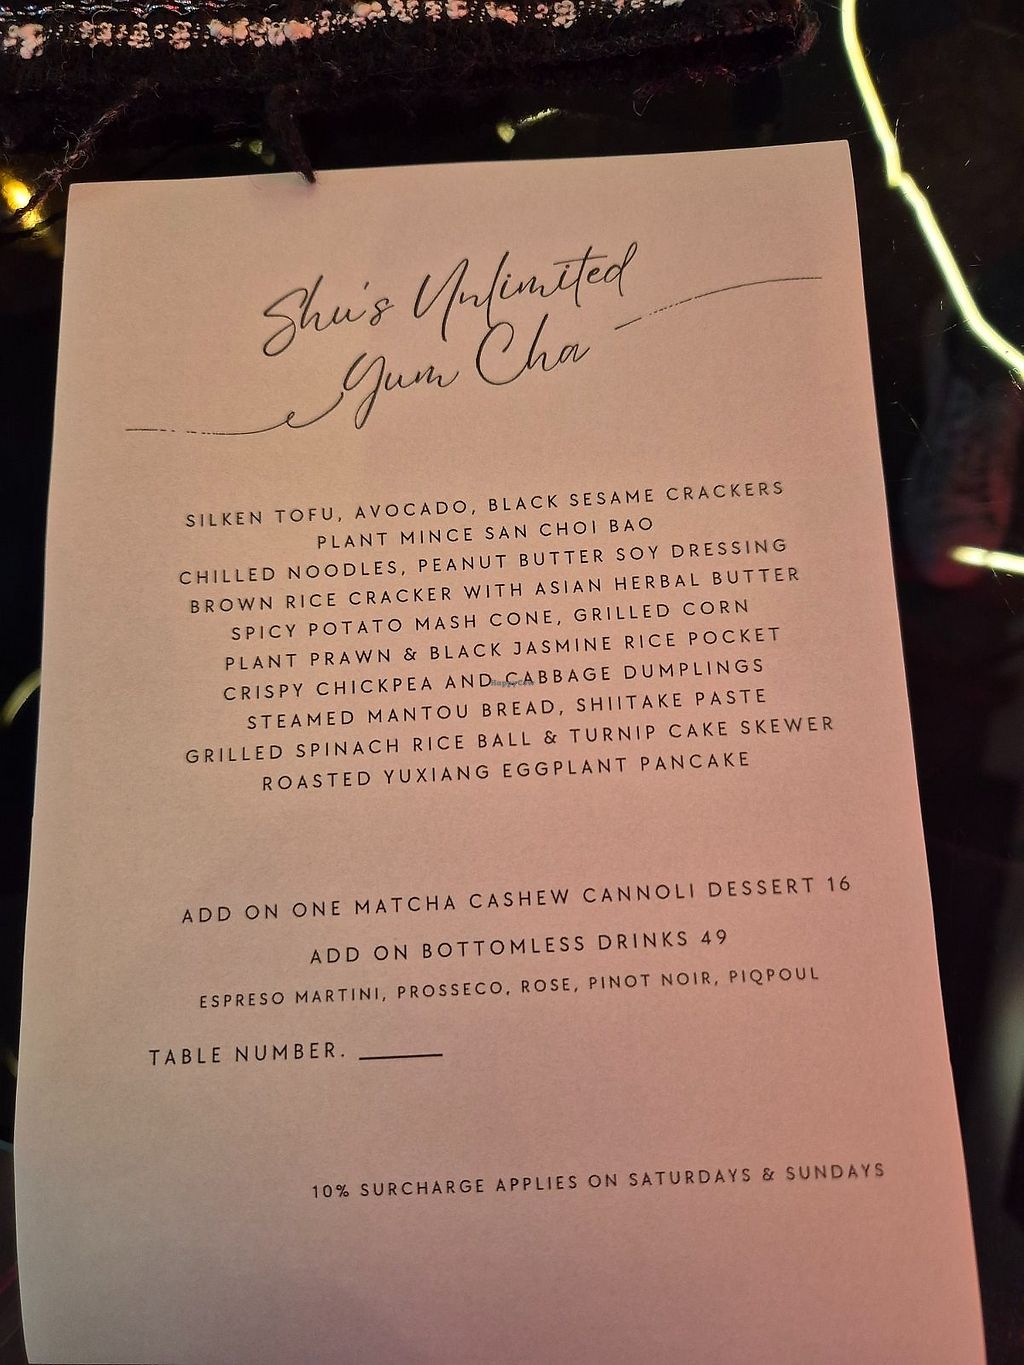 Shu's Unlimited
Yum Cha
SILKEN TOFU, AVOCADO, BLACK SESAME CRACKERS
PLANT MINCE SAN CHOI BAO
CHILLED NOODLES, PEANUT BUTTER SOY DRESSING
BROWN RICE CRACKER WITH ASIAN HERBAL BUTTER
SPICY POTATO MASH CONE, GRILLED CORN
PLANT PRAWN & BLACK JASMINE RICE POCKET
CRISPY CHICKPEA AND CABBAGE DUMPLINGS
HappyCow
STEAMED MANTOU BREAD, SHIITAKE PASTE
GRILLED SPINACH RICE BALL & TURNIP CAKE SKEWER
ROASTED YUXIANG EGGPLANT PANCAKE
ADD ON ONE MATCHA CASHEW CANNOLI DESSERT 16
ADD ON BOTTOMLESS DRINKS 49
ESPRESO MARTINI, PROSSECO, ROSE, PINOT NOIR, PIQPOUL
TABLE NUMBER.
10% SURCHARGE APPLIES ON SATURDAYS & SUNDAYS